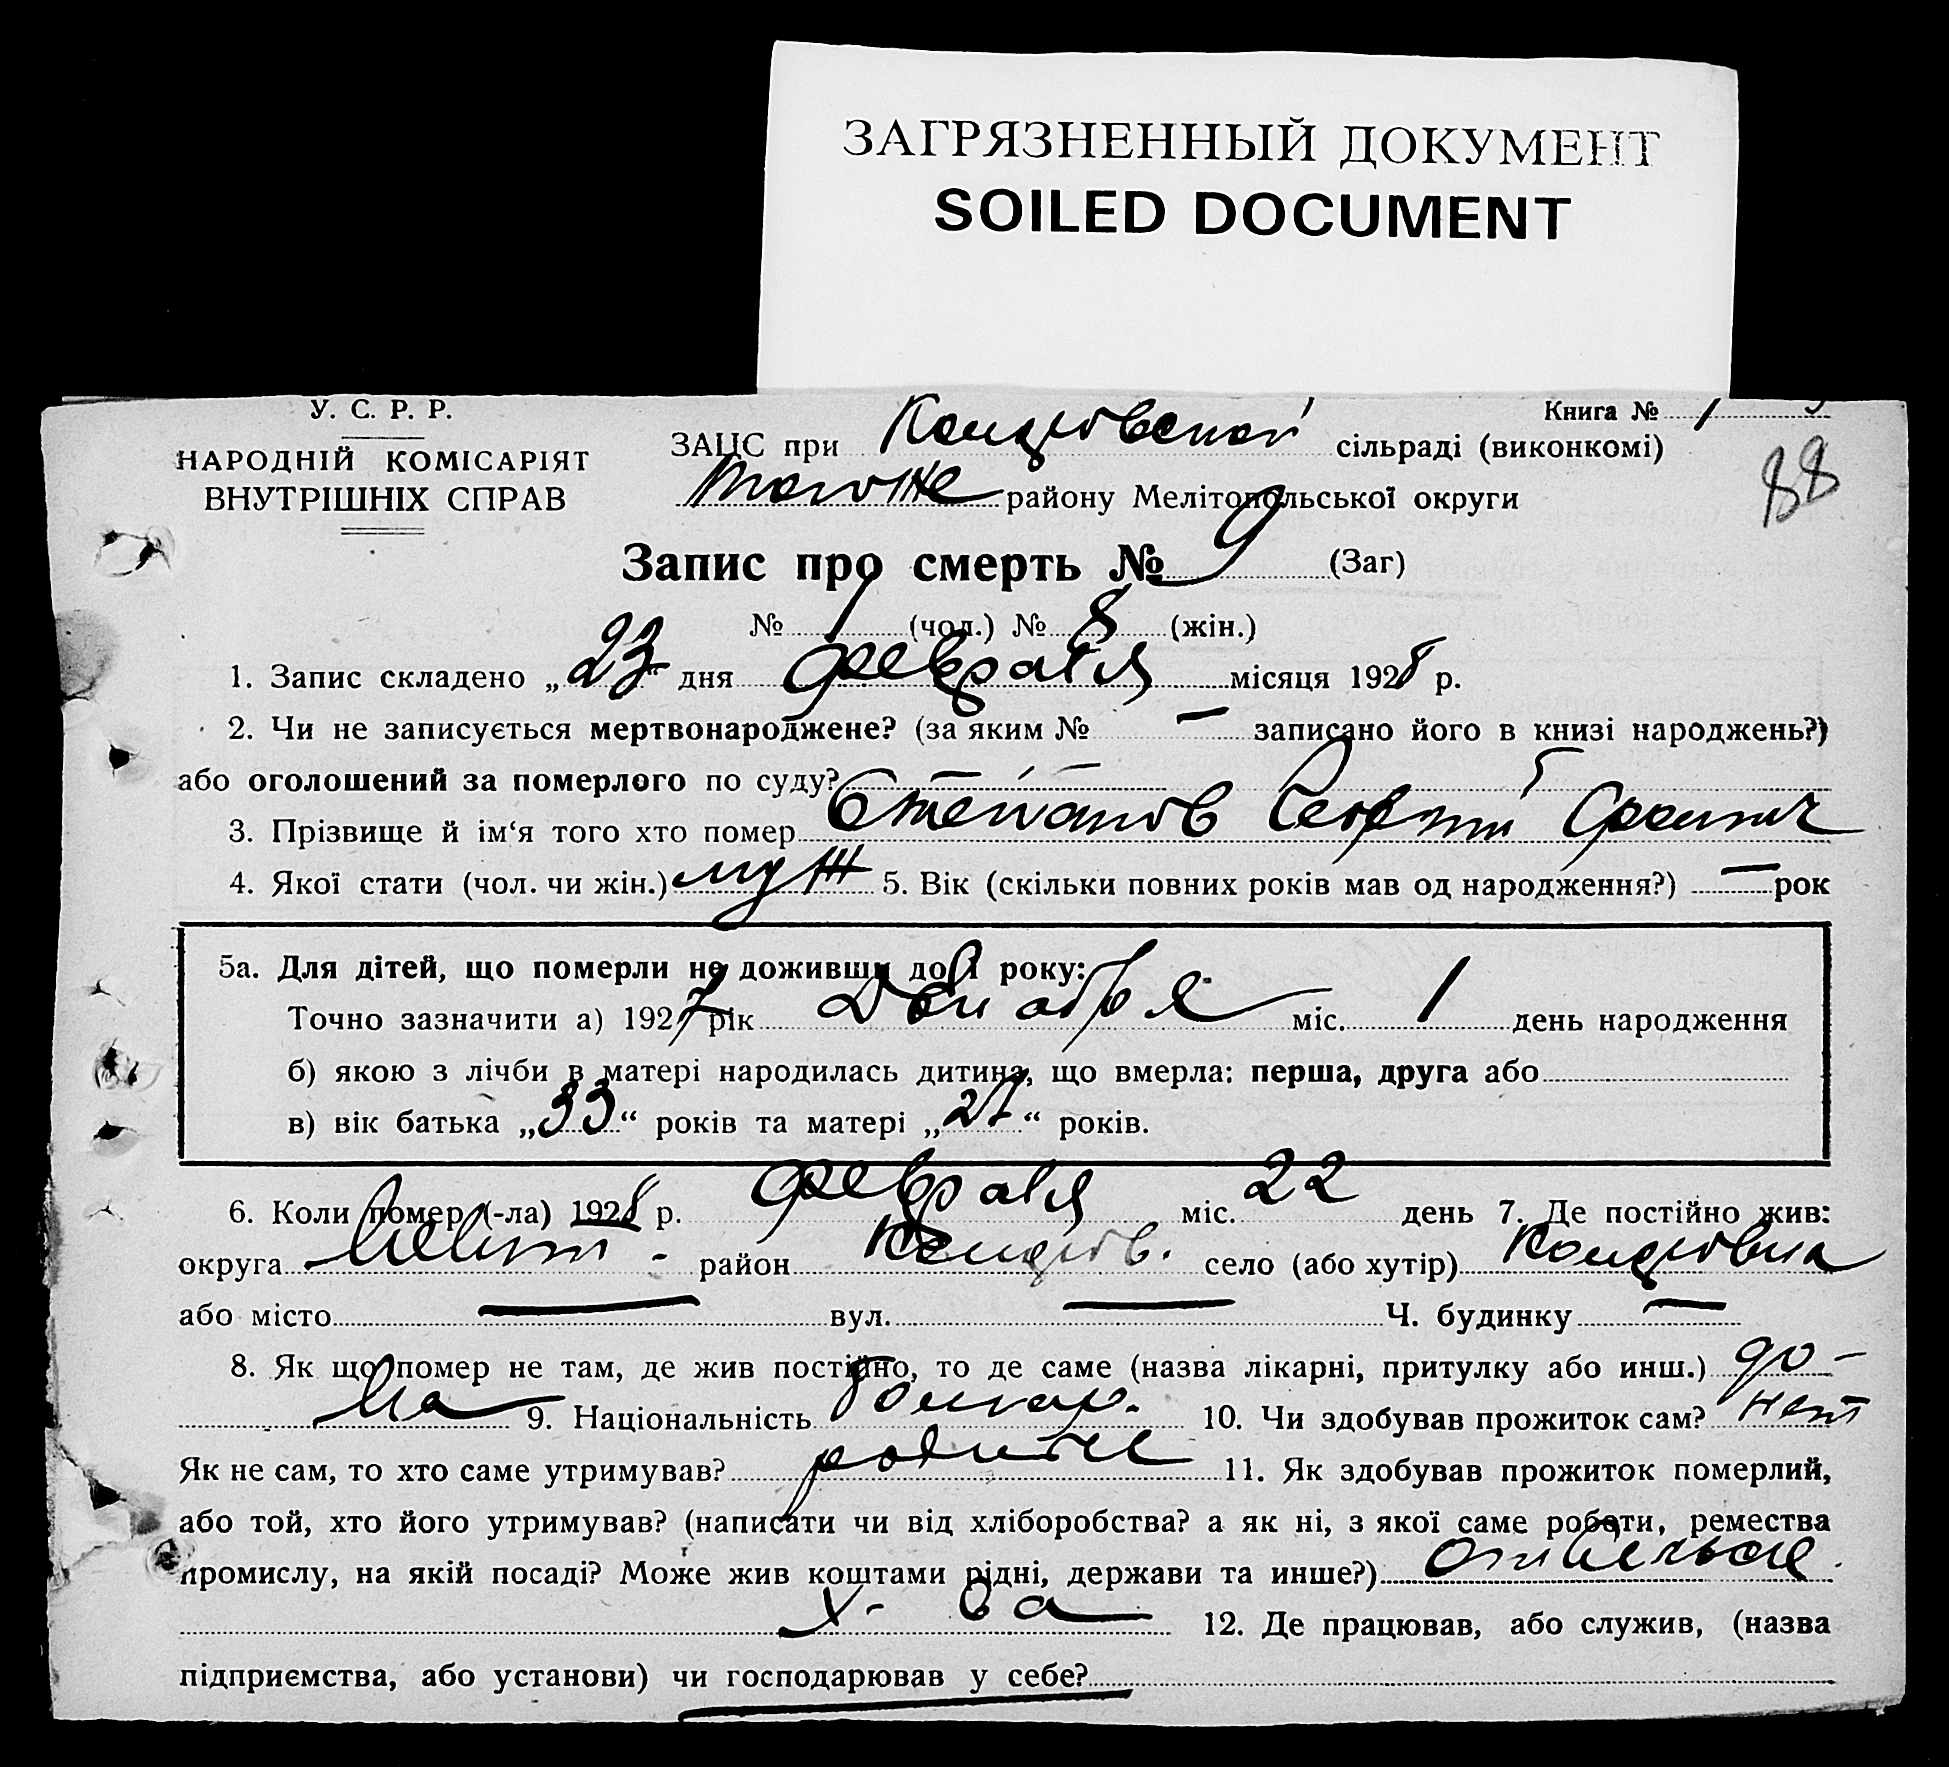 ЗАГРЯЗНЕННЫЙ ДОКУМЕНТ
SOILED DOCUMENT
У. С. Р. Р.
НАРОДНІЙ КОМІСАРІЯТ
ВНУТРІШНІХ СПРАВ
Книга № 1
88
ЗАЦС при сільраді (виконкомі)
району Мелітопольської округи
Запис про смерть № 9 (Заг)
№ 1 (чол.) № 8 (жін.)
1. Запис складено „23“ дня февраля місяця 1928 р.
2. Чи не записується мертвонароджене? (за яким № — записано його в книзі народжень?)
або оголошений за померлого по суду? —
3. Прізвище й ім‘я того хто помер Степанов Георгий
4. Якої стати (чол. чи жін.) муж 5. Вік (скільки повних років мав од народження?) — рок
5а. Для дітей, що померли не доживши до 1 року:
Точно зазначити а) 1927 рік міс. 1 день народження
б) якою з лічби в матері народилась дитина, що вмерла: перша, друга або
в) вік батька „33“ років та матері „27“ років.
6. Коли помер (-ла) 1928 р. февраля міс. 22 день 7. Де постійно жив:
округа Мелит. район село (або хутір)
або місто — вул. — Ч. будинку —
8. Як що помер не там, де жив постійно, то де саме (назва лікарні, притулку або инш.) до-
ма 9. Національність болгар. 10. Чи здобував прожиток сам? нет
Як не сам, то хто саме утримував? родители 11. Як здобував прожиток померлий,
або той, хто його утримував? (написати чи від хліборобства? а як ні, з якої саме роботи, ремества
промислу, на якій посаді? Може жив коштами рідні, держави та инше?) от сельск.
х-ва 12. Де працював, або служив, (назва
підприємства, або установи) чи господарював у себе?